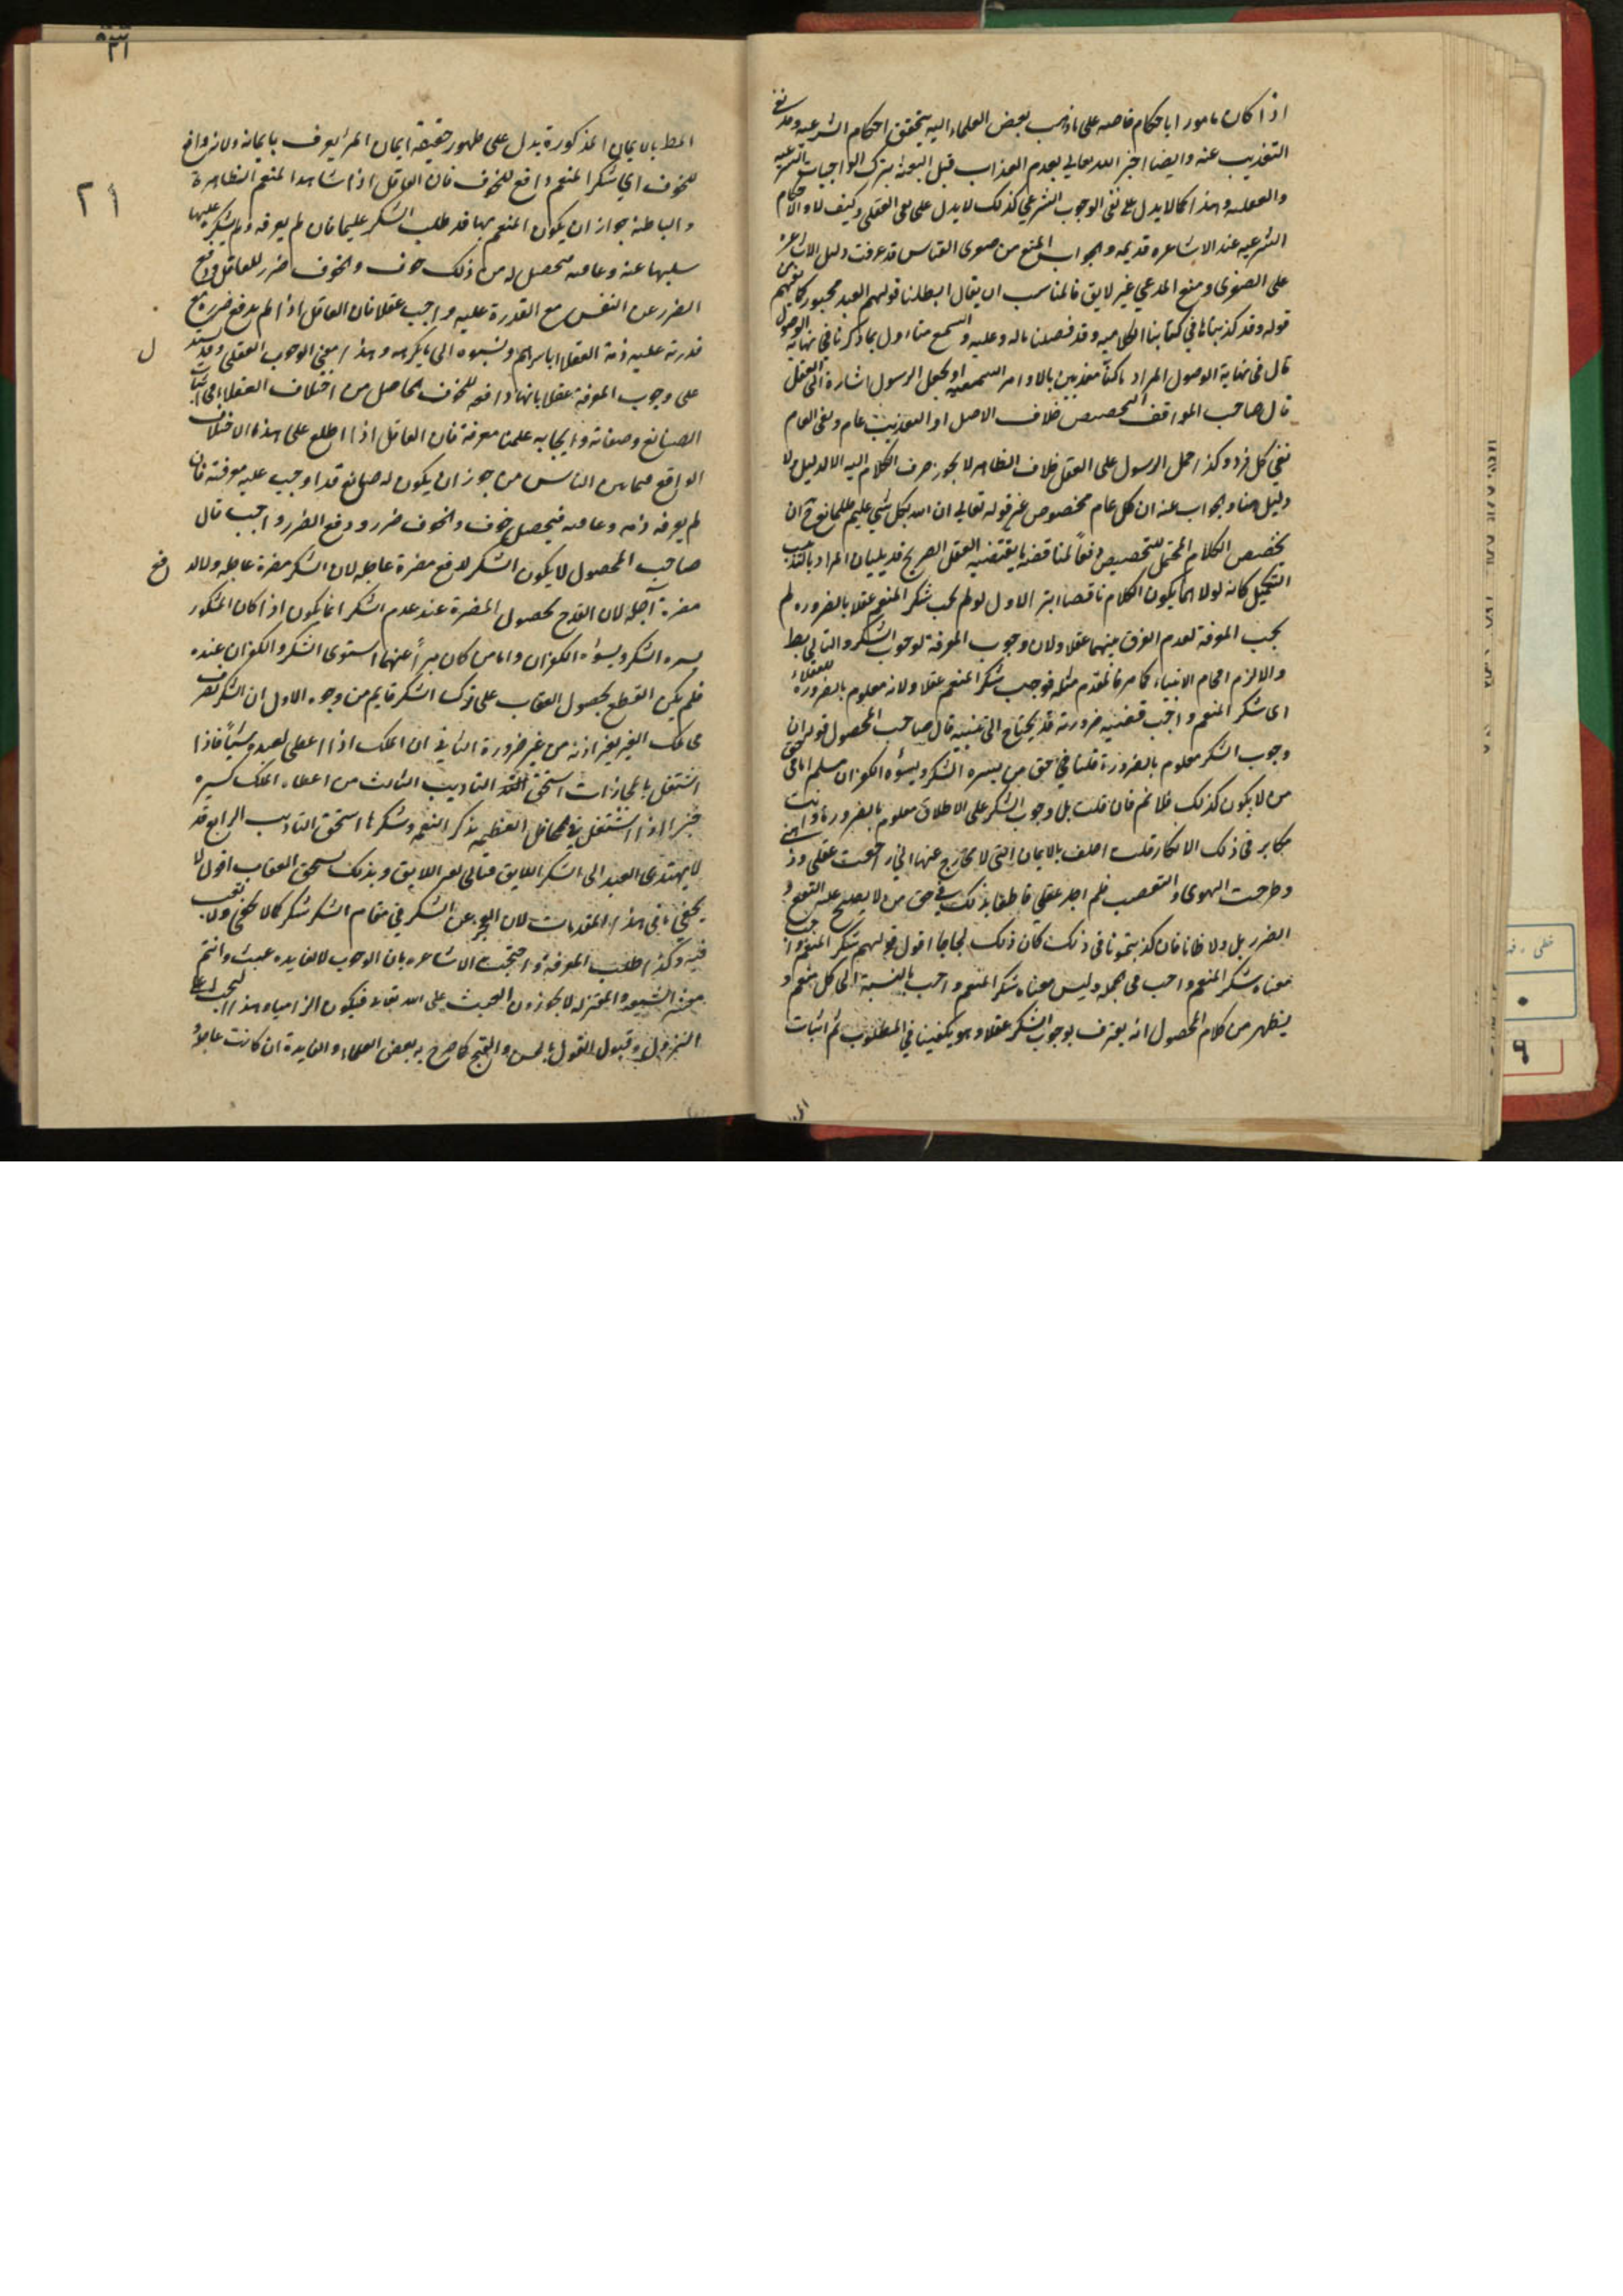 اذا كان مامورا باحكام خاصه على ما ذهب بعض العلماء اليه يتحقق احكام الشرعيه وقد نفى
التعذيب عنه وايضا اخبر الله تعالى بعدم العذاب قبل البعثة بترك الواجبات الشرعيه
والعقليه وهذا كما لا يدل على نفى الوجوب الشرعي كذلك لا يدل على نفى العقلى وكيف لا والاحكام
الشرعيه عند الاشاعره قديمه والجواب المنع من صغرى القياس قد عرفت دليل الاشاعره
على الصغرى ومنع المدعي غير لايق فالمناسب ان يقال ابطلنا قولهم العبد مجبور
قوله وقد كذبناها في كتابنا الكلاميه وقد فصلنا ماله وعليه والسمع متاول بما ذكرنا في نهاية الوصول
قال فى نهاية الوصول المراد ما كنا معذبين بالاوامر السمعيه او يجعل الرسول اشارة الى العقل
قال صاحب المواقف التخصيص خلاف الاصل اذ التعذيب عام ونفى العام
نفي كل فرد وكذا حمل الرسول على العقل خلاف الظاهر لا يجوز صرف الكلام اليه الا لدليل ولا
دليل هنا والجواب عنه ان كل عام مخصوص غير قوله تعالى ان الله بكل شي عليم فلا مانع
تخصيص الكلام المحتمل للتخصيص دفعا لمناقضة ما يقتضيه العقل الصريح
التكميل كانه لولاهما يكون الكلام ناقصا ابتر الاول لو لم يجب شكر المنعم عقلا بالضروره لم
يجب المعرفة لعدم الفرق بينهما عقلا ولان وجوب المعرفة لوجوب الشكر والتالي بط
والا لزم افحام الانبياء كما مر فالمقدم مثله فوجب شكر المنعم عقلا ولانه معلوم بالضرورة للعقلاء
اى شكر المنعم واجب قضيه ضروريه قد يحتاج الى تنبيه قال صاحب المحصول قوله ان
وجوب الشكر معلوم بالضرورة قلنا في حق من يسره الشكر ويسؤه الكفران مسلم اما فى حق
من لا يكون كذلك فلا نم فان قلت بل وجوب الشكر على الاطلاق معلوم بالضرورة وانت
مكابر فى ذلك الانكار قلت احلف بالايمان التى لا مخارج عنها انى راجعت عقلى وذهنى
وطرحت الهوى والتعصب فلم اجد عقلى قاطعا بذلك في حق من لا يصلح عليه النفع و
الضرر بل ولا ظانا فان كذبتمونا فى ذلك كان ذلك لجاجا اقول قولهم شكر المنعم واجب
معناه شكر المنعم واجب فى الجمله وليس معناه شكر المنعم واجب بالنسبة الى كل منعم و
يظهر من كلام المحصول انه يعترف بوجوب الشكر عقلا وهو يكفينا في المطلوب ثم اثبات
٢١
المط بالايمان المذكورة يدل على ظهور حقيقة ايمان المرء يعرف بايمانه ولانه دافع
للخوف اي شكر المنعم دافع للخوف فان العاقل اذا شاهد المنعم الظاهرة
والباطنة جواز ان يكون المنعم بها قد طلب الشكر عليها فان لم يعرفه ولم يشكره عليها
سلبها عنه وعاقبه فيحصل له من ذلك خوف والخوف ضرر للعاقل ودفع
الضرر عن النفس مع القدرة عليه واجب عقلا فان العاقل اذا لم يدفع ضرره مع
قدرته عليه ذمه العقلاء باسرهم ونسبوه الى ما يكرهه وهذا معنى الوجوب العقلى وقد يستدل
على وجوب المعرفة عقلا بانها دافعه للخوف الحاصل من اختلاف العقلاء في اثبات
الصانع وصفاته وايجابه علينا معرفة فان العاقل اذا اطلع على هذه الاختلاف
الواقع فيما بين الناس من جواز ان يكون له صانع قد اوجب عليه معرفته فان
لم يعرفه ذمه وعاقبه فيحصل خوف والخوف ضرر ودفع الضرر واجب قال
صاحب المحصول لا يكون الشكر لدفع مضرة عاجله لان الشكر مضرة عاجله ولا لدفع
مضرة آجلة لان القدح لحصول المضرة عند عدم الشكر انما يكون اذا كان المشكور
يسره الشكر ويسؤه الكفران واما من كان مبرأ عنهما استوى الشكر والكفران عنده
فلم يكن القطع بحصول العقاب على ترك الشكر قايم من وجوه الاول ان الشكر تصرف
فى ملك الغير بغير اذنه من غير ضرورة الثاني ان الملك اذا اعطى لعبده شيأ فاذا
اشتغل بالمجازات استحق التاديب الثالث من اعطاه الملك كسيره
خبز اذا اشتغل في المحافل العظيمه بذكر النعمه وشكرها استحق التاديب الرابع قد
لا يهتدى العبد الى الشكر اللايق فياتى بغير اللايق وبذلك يستحق العقاب اقول لا
يخفى ما فى هذه المقدمات لان العجز عن الشكر في مقام الشكر شكر كما لا يخفى ولا تعب
فيه وكذا طلب المعرفة واحتجت الاشاعره بان الوجوب لا لفايده عبث وانتم
معشر الشيعه والمعتزله لا يجوزون العبث على الله تعالى فيكون الزاميا وهذا البحث على
التنزل وقبول القول بالحسن والقبح كما صرح به بعض العلماء والفايدة ان كانت عاجلة